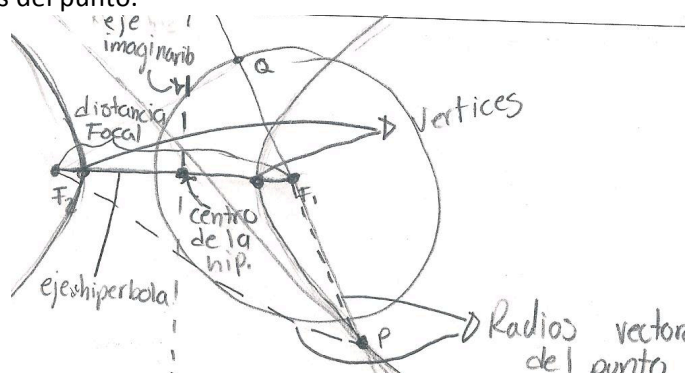 s del punto.
eje
imaginario
Q
distancia
Focal
Vertices
F₂
F₁
centro
de la
hip.
eje hiperbola
P
Radios vector
del punto